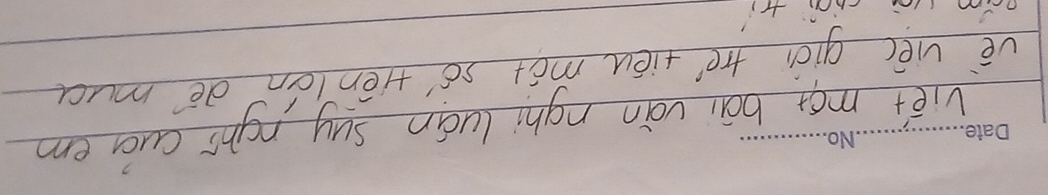 Date................No................
Viết một bài văn nghị luận suy nghĩ của em
về việc giới trẻ tiêu một số tiền lớn để mua
sắm và giải trí